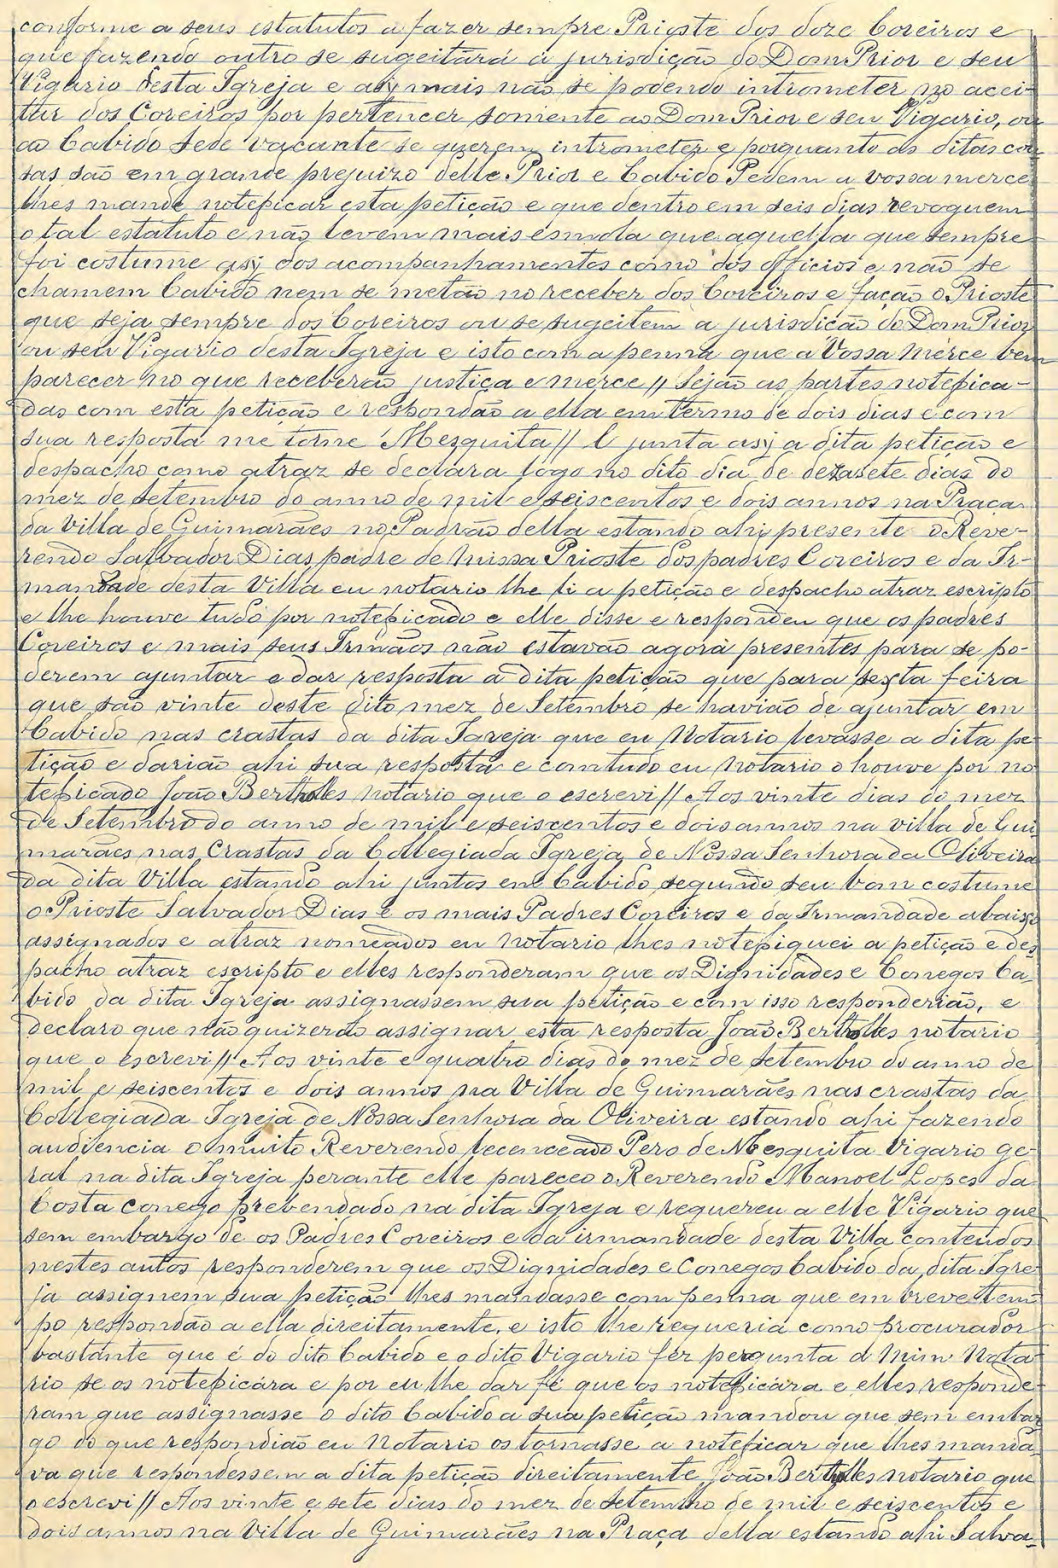 conforme a seus estatutos a fazer sempre Prioste dos doze Coreiros e
que fazendo outro se sugeitará á jurisdição do Dom Prior e seu
Vigario desta Igreja e asy mais não se podendo intrometer no acei-
ttar dos Coreiros por pertencer somente ao Dom Prior e seu Vigario, ou
ao Cabido Sede vacante se querem intrometer e porquanto as ditas cou-
sas são em grande prejuizo delle Prior e Cabido Pedem a vossa merce
lhes mande noteficar esta petição e que dentro em seis dias revoguem
o tal estatuto e não levem mais esmola que aquella que sempre
foi costume asy dos acompanhamentos como dos officios e não se
chamem Cabido nem se metão no receber dos Coreiros e fação o Prioste
que seja sempre dos Coreiros ou se sugeitem a jurisdição do Dom Prior
ou seu Vigario desta Igreja e isto com a penna que a Vossa Merce bem
parecer no que receberão justiça e merce // Sejão as partes notefica-
das com esta petição e respondão a ella em termo de dois dias e com
sua resposta me torne Mesquita // E junta asy a dita petição e
despacho como atraz se declara logo no dito dia de dezasete dias do
mez de setembro do anno de mil e seiscentos e dois annos na Praça
da Villa de Guimarães no Padrão della estando ahi presente o Reve-
rendo Salvador Dias padre de missa Prioste dos padres Coreiros e da Ir-
mandade desta Villa eu notario lhe li a petição e despacho atraz escripto
e lhe houve tudo por noteficado e elle disse e respondeu que os padres
Coreiros e mais seus Irmãos não estavão agora presentes para se po-
derem ajuntar e dar resposta á dita petição que para sexta feira
que são vinte deste dito mez de Setembro se havião de ajuntar em
Cabido nas crastas da dita Igreja que eu Notario levasse a dita pe-
tição e darião ahi sua resposta e comtudo eu Notario o houve por no
teficado João Bertholles notario que o escrevi // Aos vinte dias do mez
de Setembro do anno de mil e seiscentos e dois annos na villa de Gui
marães nas Crastas da Collegiada Igreja de Nossa Senhora da Oliveira
da dita Villa estando ahi juntos em Cabido segundo seu bom costume
o Prioste Salvador Dias e os mais Padres Coreiros e da Irmandade abaixo
assignados e atraz nomeados eu Notario lhes notefiquei a petição e des
pacho atraz escripto e elles responderam que os Dignidades e Conegos Ca-
bido da dita Igreja assignassem sua petição e com isso responderião, e
declaro que não quizerão assignar esta resposta João Bertholles notario
que o escrevi // Aos vinte e quatro dias do mez de setembro do anno de
mil e seiscentos e dois annos na Villa de Guimarães nas crastas da
Collegiada Igreja de Nossa Senhora da Oliveira estando ahi fazendo
audiencia o muito Reverendo lecenceado Pero de Mesquita Vigario ge-
ral na dita Igreja perante elle pareceo o Reverendo Manoel Lopes da
Costa conego prebendado na dita Igreja e requereu a elle Vigario que
sem embargo de os Padres Coreiros e da irmandade desta Villa contendos
nestes autos responderem que os Dignidades e Conegos Cabido da dita Igre
ja assignem sua petição lhes mandasse com penna que em breve tem
po respondão a ella direitamente, e isto lhe requeria como procurador
bastante que é do dito Cabido e o dito Vigario fez pergunta a Mim Nota
rio se os noteficára e por eu lhe dar fé que os noteficára e elles responde-
ram que assignasse o dito Cabido a sua petição mandou que sem embar
go do que respondião eu Notario os tornasse a noteficar que lhes manda-
va que respondessem a dita petição direitamente João Bertholles notario que
o escrevi // Aos vinte e sete dias do mez de Setembro de mil e seiscentos e
dois annos na Villa de Guimarães na Praça della estando ahi Salva-